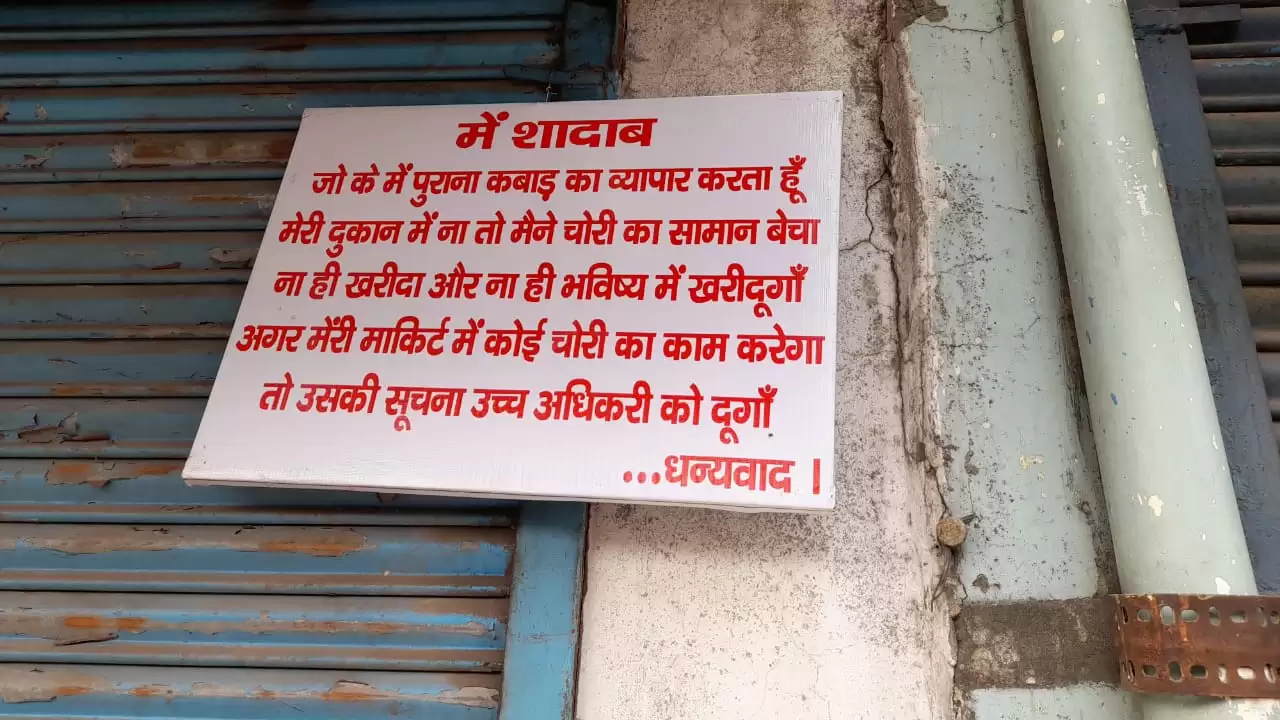 में शादाब
जो के में पुराना कबाड़ का व्यापार करता हूँ
मेरी दुकान में ना तो मैने चोरी का सामान बेचा
ना ही खरीदा और ना ही भविष्य में खरीदूगाँ
अगर मेंरी माकिर्ट में कोई चोरी का काम करेगा
तो उसकी सूचना उच्च अधिकरी को दूगाँ
...धन्यवाद ।